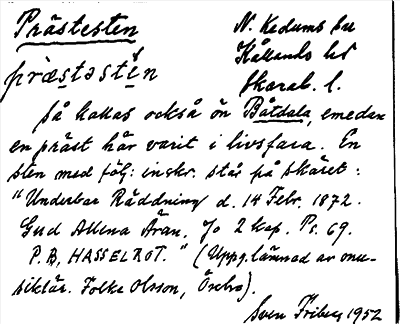 Prästesten
N. Kedums sn
Kållands hd
Skarab. l.
præ̀stəstén
så kallas också ön Båtdala, emedan
en präst här varit i livsfara. En
sten med följ: inskr. står på skäret:
"Underbar Räddning d. 14 Febr. 1872.
Gud Allena Äran. Jo 2 kap. Ps. 69.
P.B. HASSELROT." (Uppg. lämnad av mu-
sikdir. Folke Olsson, Örebro).
Sven Friberg 1952